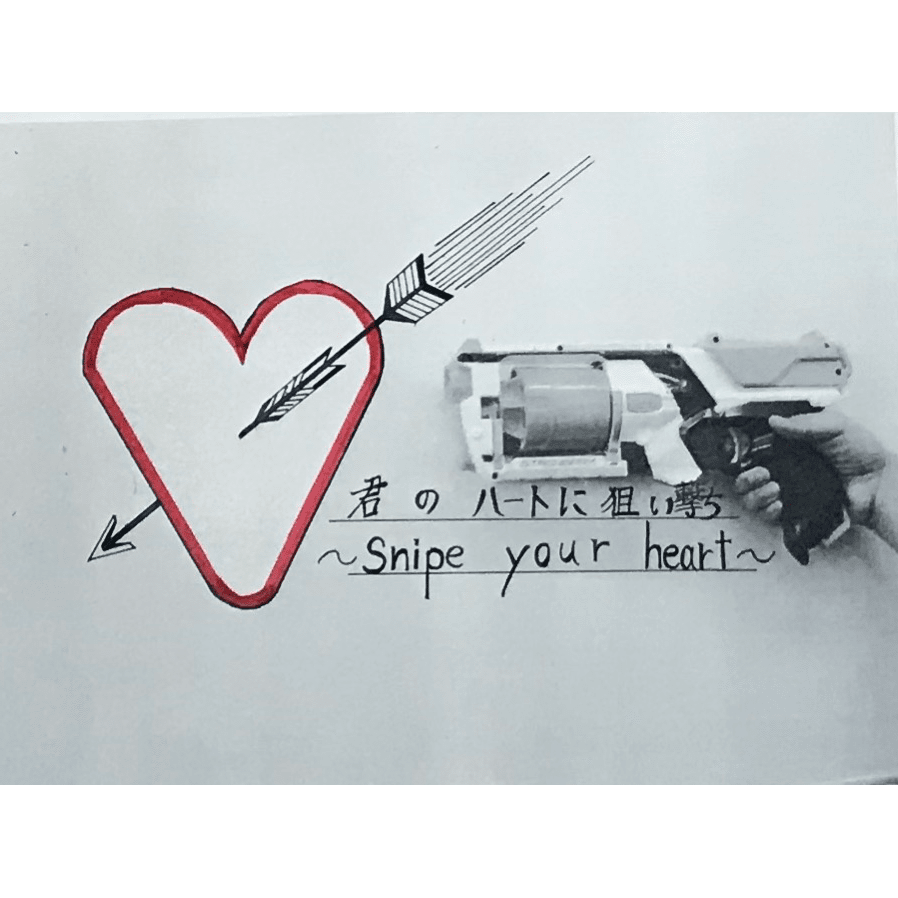 君のハートに狙い撃ち
〜Snipe your heart〜